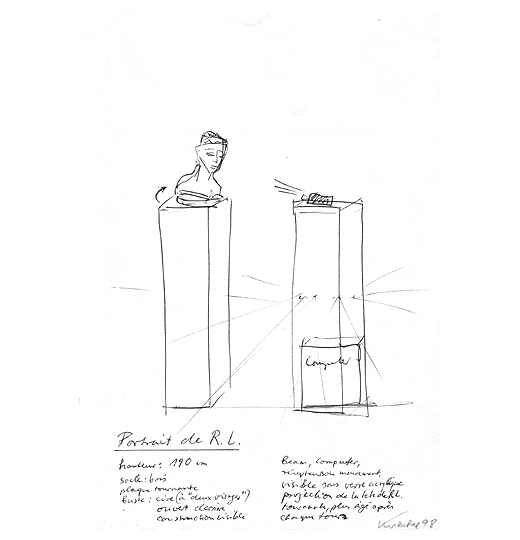 Computer
Portrait de R.L.
hauteur: 190 cm
socle: bois
plaque tournante
Buste: cire (à "deux visages")
ouvert derrière
construction visible
Beam, Computer,
mouvement,
visible sous verre acrylique
projection de la tête de R.L.
tournante, plus âgé après
chaque tour
98